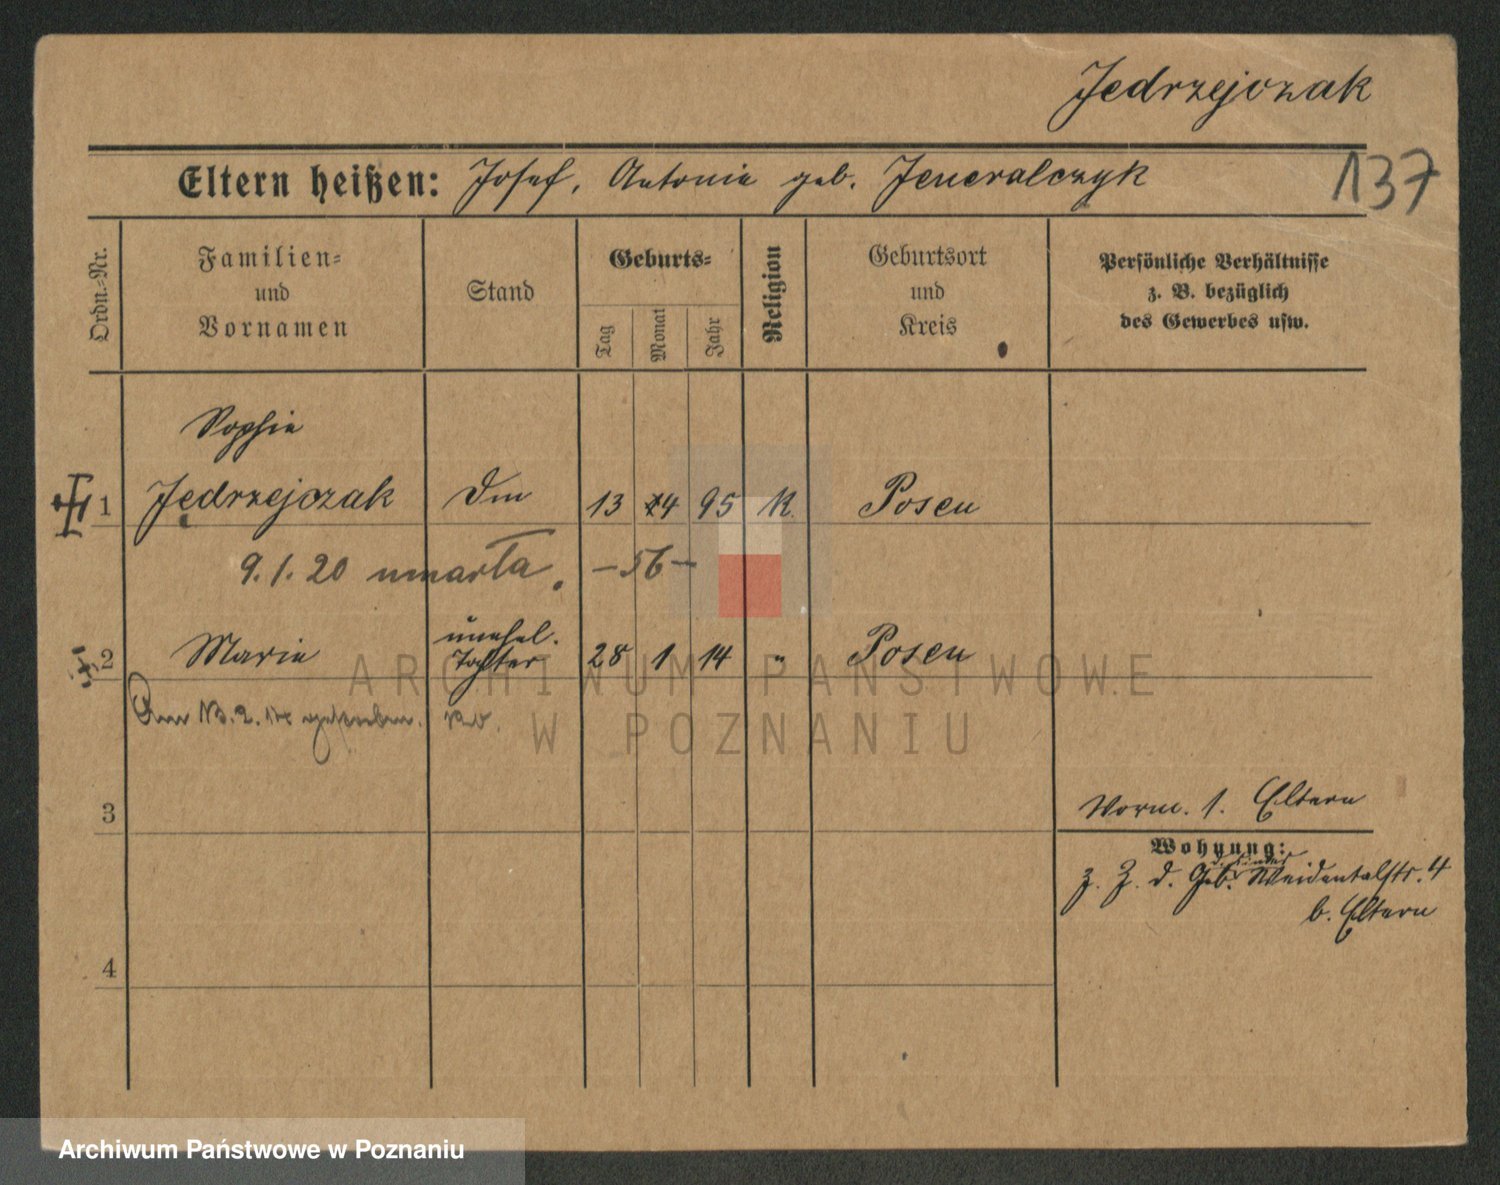 Jedrzejczak
137
Eltern heißen: Josef, Antonie geb. Jeneralczyk
Ordn.-Nr.
Familien-
und
Vornamen
Stand
Geburts-
Tag
Monat
Jahr
Religion
Geburtsort
und
Kreis
Persönliche Verhältnisse
z. B. bezüglich
des Gewerbes usw.
Sophie
1 Jedrzejczak 13 4 95 K. Posen
9. 1. 20 umarła. –56–
unehel.
2 Marie Tochter 28 1 14 " Posen
Am 13. 2. 14 gestorben.
3
Vorm. 1. Eltern
Wohnung:
z. Z. d. Geb. Weidentalstr. 4
b. Eltern
4
ARCHIWUM PAŃSTWOWE
W POZNANIU
Archiwum Państwowe w Poznaniu